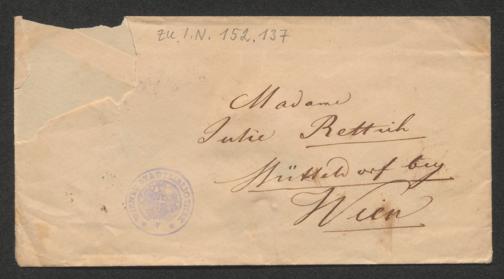 zu I.N. 152.137
Madame
Julie Rettich
Hütteldorf bey
Wien